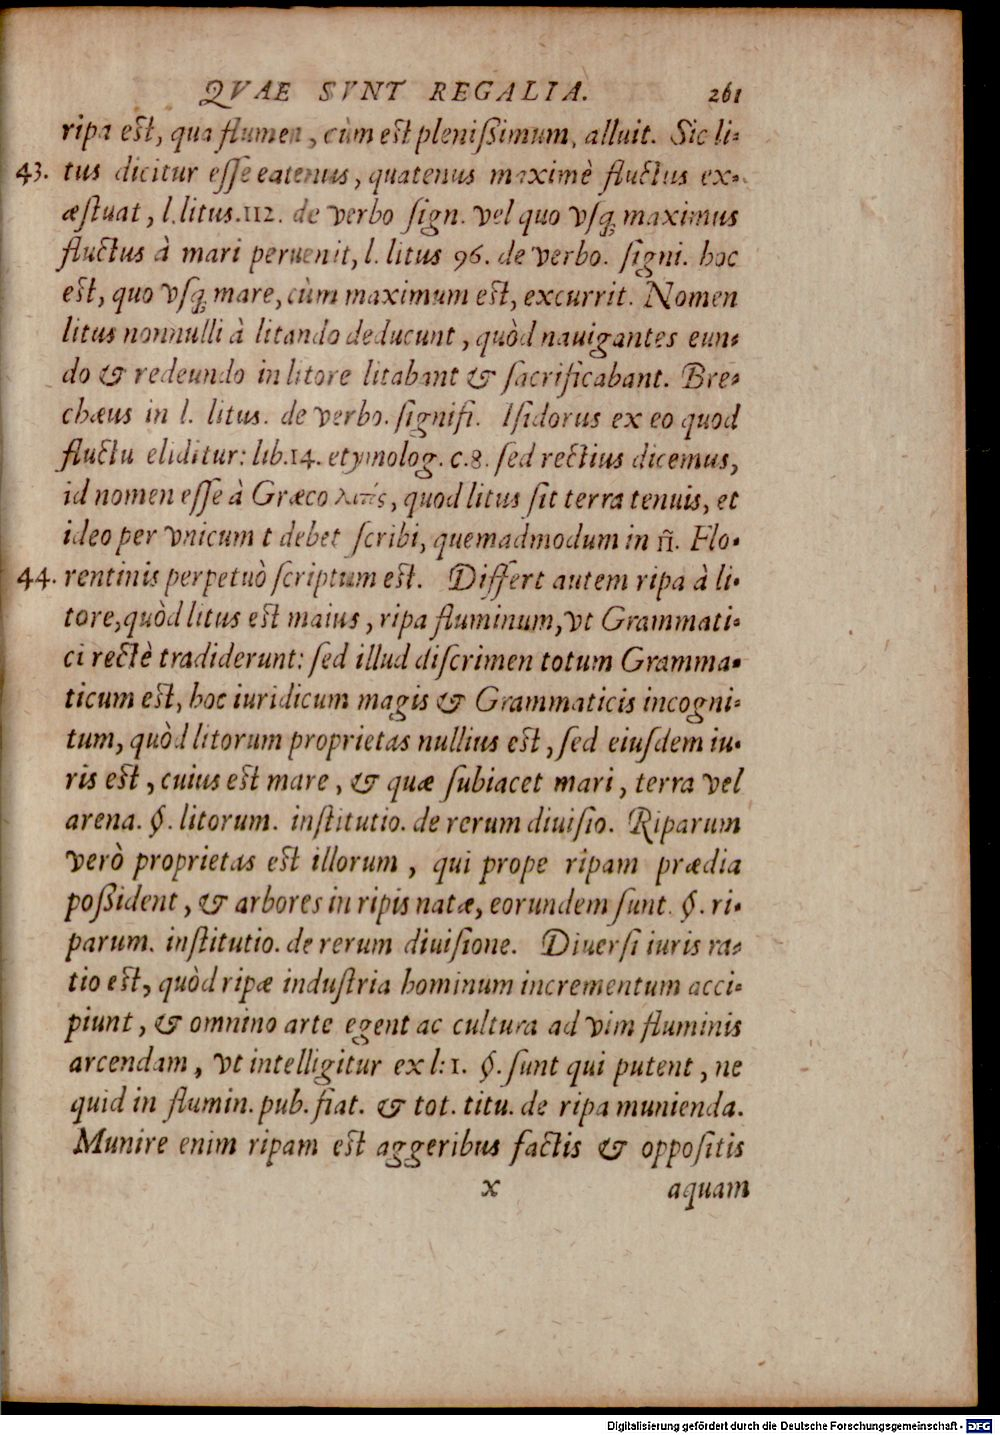 QVAE SVNT REGALIA. 261
ripa est, qua flumen, cùm est plenißimum, alluit. Sic li-
43. tus dicitur esse eatenus, quatenus maximè fluctus ex-
æstuat, l. litus. 112. de verbo sign. vel quo vsq; maximus
fluctus à mari peruenit, l. litus 96. de verbo. signi. hoc
est, quo vsq; mare, cùm maximum est, excurrit. Nomen
litus nonnulli à litando deducunt, quòd nauigantes eun-
do & redeundo in litore litabant & sacrificabant. Bre-
chæus in l. litus. de verbo. signifi. Isidorus ex eo quod
fluctu eliditur: lib. 14. etymolog. c. 8. sed rectius dicemus,
id nomen esse à Græco λιτός, quod litus sit terra tenuis, et
ideo per vnicum t debet scribi, quemadmodum in ñ. Flo-
44. rentinis perpetuò scriptum est. Differt autem ripa à li-
tore, quòd litus est maius, ripa fluminum, vt Grammati-
ci rectè tradiderunt: sed illud discrimen totum Gramma-
ticum est, hoc iuridicum magis & Grammaticis incogni-
tum, quòd litorum proprietas nullius est, sed eiusdem iu-
ris est, cuius est mare, & quæ subiacet mari, terra vel
arena. §. litorum. institutio. de rerum diuisio. Riparum
verò proprietas est illorum, qui prope ripam prædia
poßident, & arbores in ripis natæ, eorundem sunt. §. ri-
parum. institutio. de rerum diuisione. Diuersi iuris ra-
tio est, quòd ripæ industria hominum incrementum acci-
piunt, & omnino arte egent ac cultura ad vim fluminis
arcendam, vt intelligitur ex l: 1. §. sunt qui putent, ne
quid in flumin. pub. fiat. & tot. titu. de ripa munienda.
Munire enim ripam est aggeribus factis & oppositis
x aquam
Digitalisierung gefördert durch die Deutsche Forschungsgemeinschaft - DFG